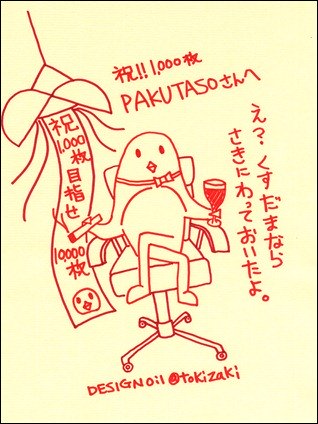 祝!! 1,000枚
PAKUTASOさんへ
え？くすだまなら
さきにわっておいたよ。
祝
1,000
枚
目
指
せ
10000
枚
DESIGN oil @tokizaki